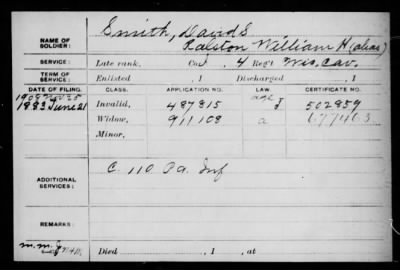 NAME OF SOLDIER: Smith, David S
Ralston William H (alias)
SERVICE: Late rank, Co. , 4 Reg't Wis. Cav.
TERM OF SERVICE: Enlisted , 1 Discharged , 1
DATE OF FILING. CLASS. APPLICATION NO. LAW. CERTIFICATE NO.
1883 June 21 Invalid, 487815 J 502859
Widow, 911108 a 677463
Minor,
ADDITIONAL SERVICES: C. 110 Pa. Inf
REMARKS:
Died , 1 , at